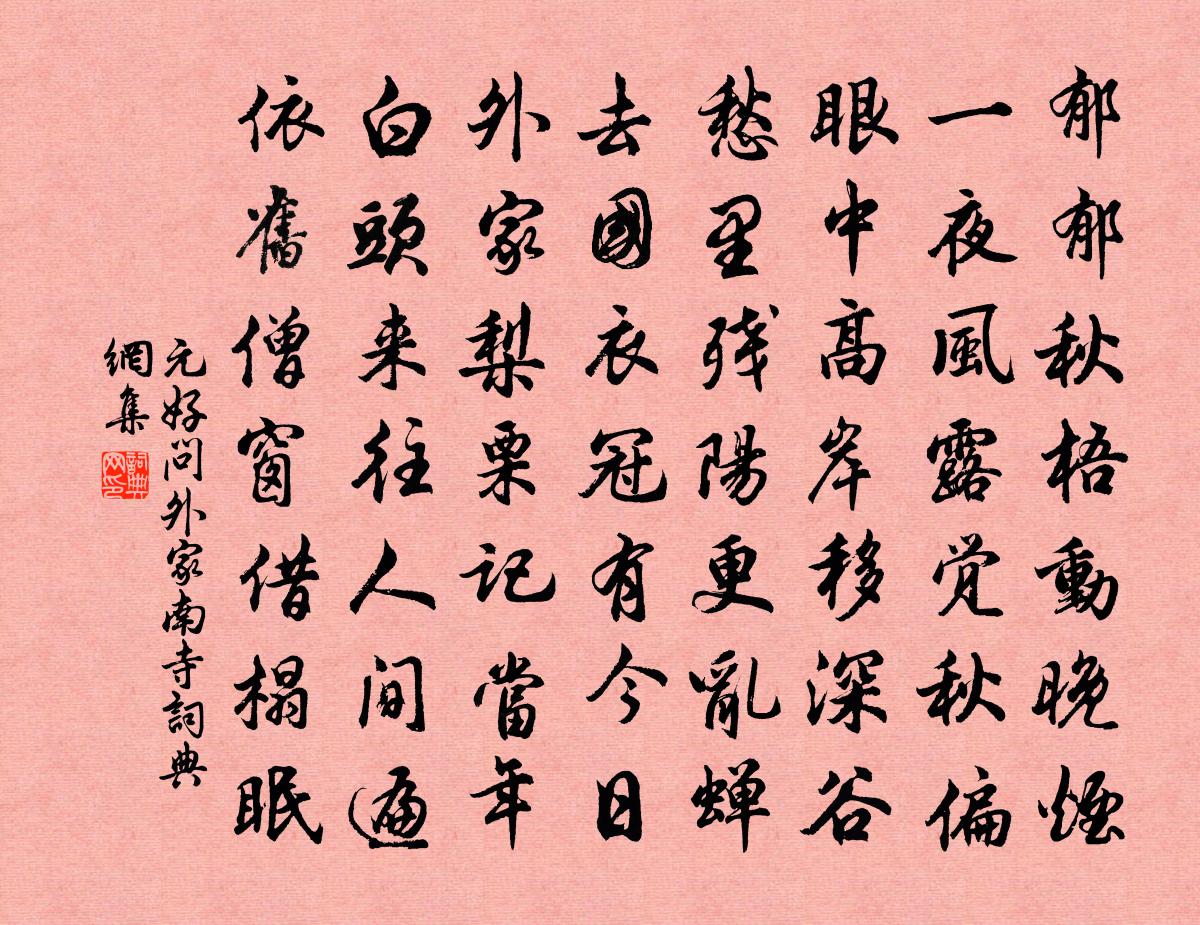 郁郁秋梧動晚煙
一夜風露覚秋偏
眼中高岸移深谷
愁里残陽更亂蝉
去國衣冠有今日
外家梨栗記當年
白頭来往人间遍
依舊僧窗借榻眠
元好问外家南寺詞典
網集
詞典网印